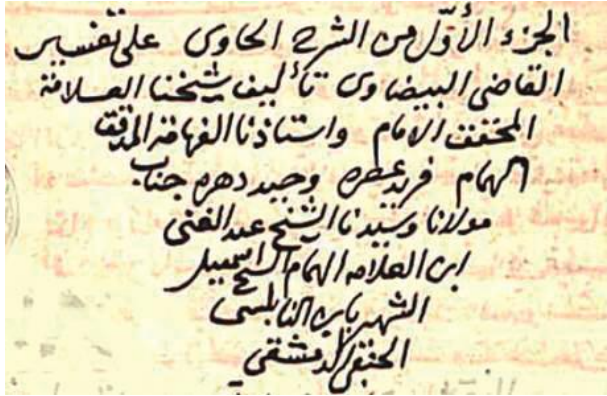 الجزء الأوّل من الشرح الحاوى على تفسير
القاضى البيضاوى تأليف شيخنا العلامة
المحقق الامام واستاذنا الفهامة المدقق
الهمام فريد عصره وحيد دهره جناب
مولانا وسيدنا الشيخ عبد الغنى
ابن العلامه الهمام الشيخ اسمعيل
الشهير بابن النابلسى
الحنفى الدمشقى